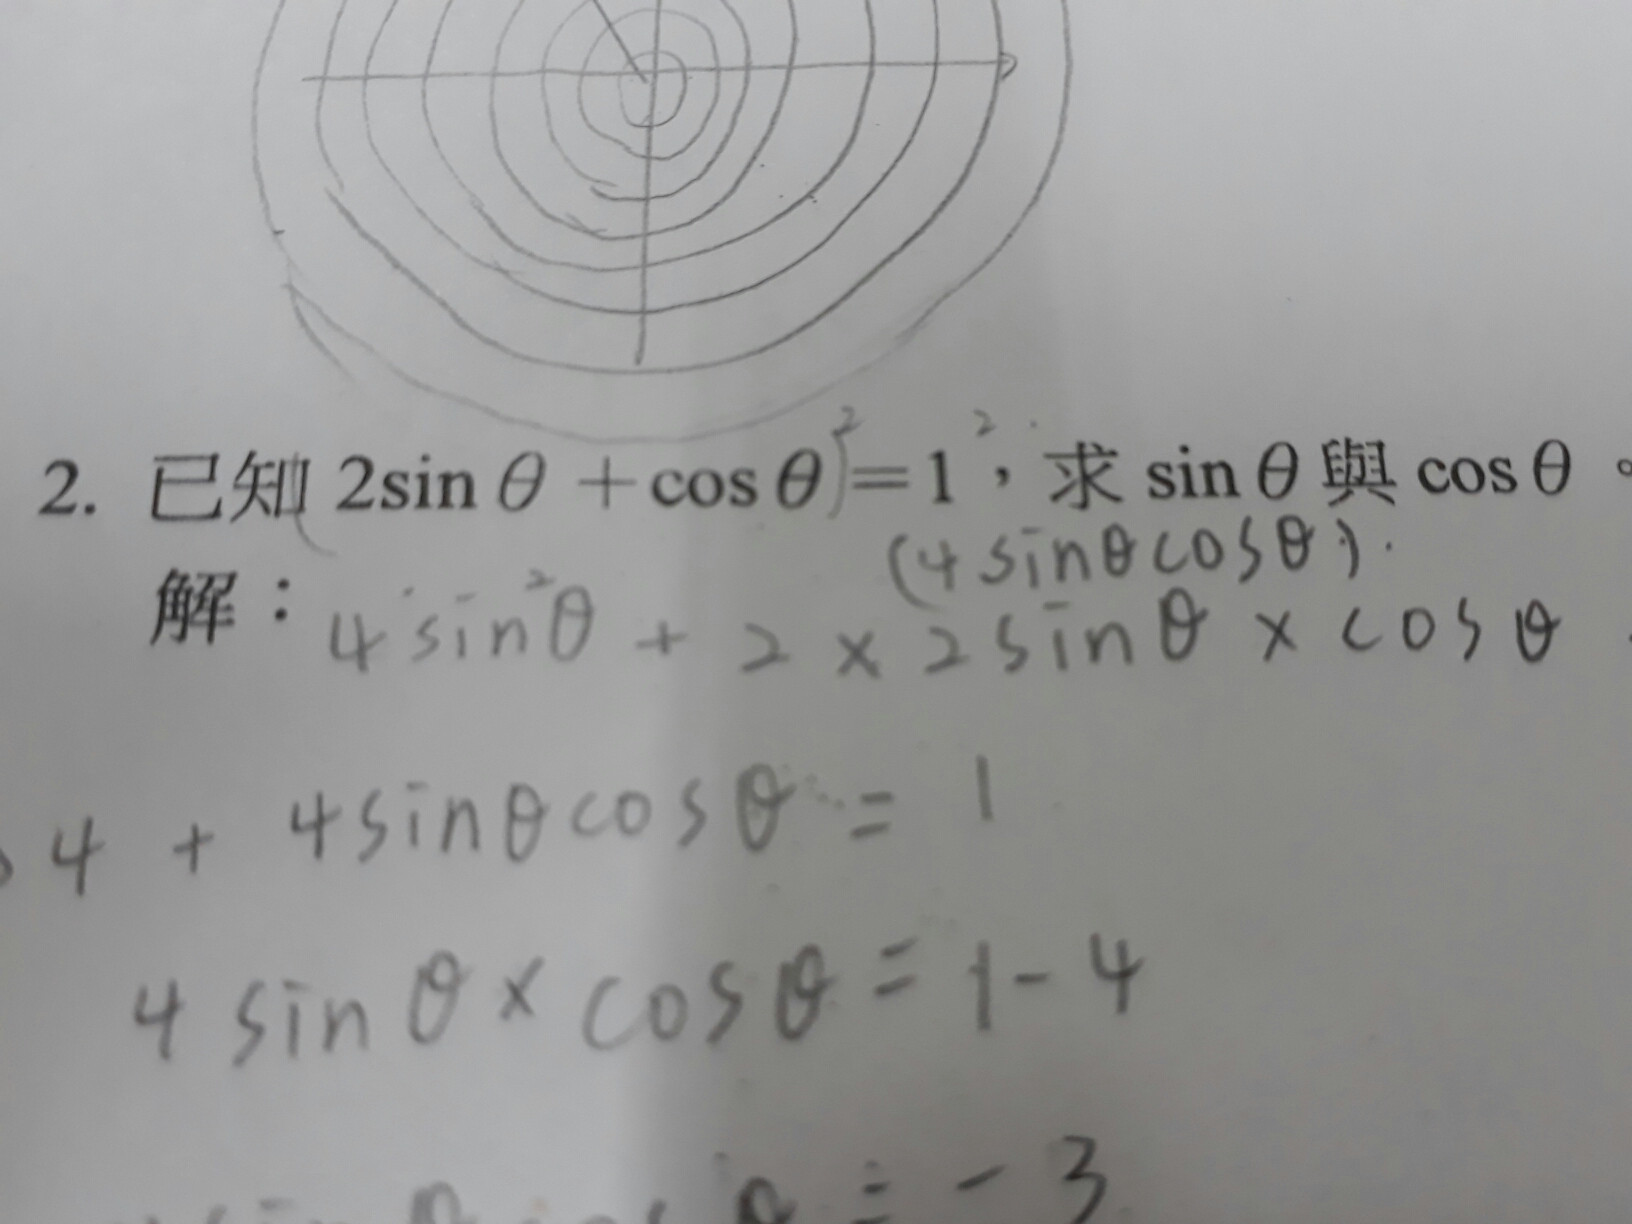 2. 已知(2sin θ + cos θ)² = 1²，求 sin θ 與 cos θ。
(4sinθcosθ)
解：4sin²θ + 2 × 2sinθ × cosθ
4 + 4sinθcosθ = 1
4sinθ × cosθ = 1 - 4
= -3